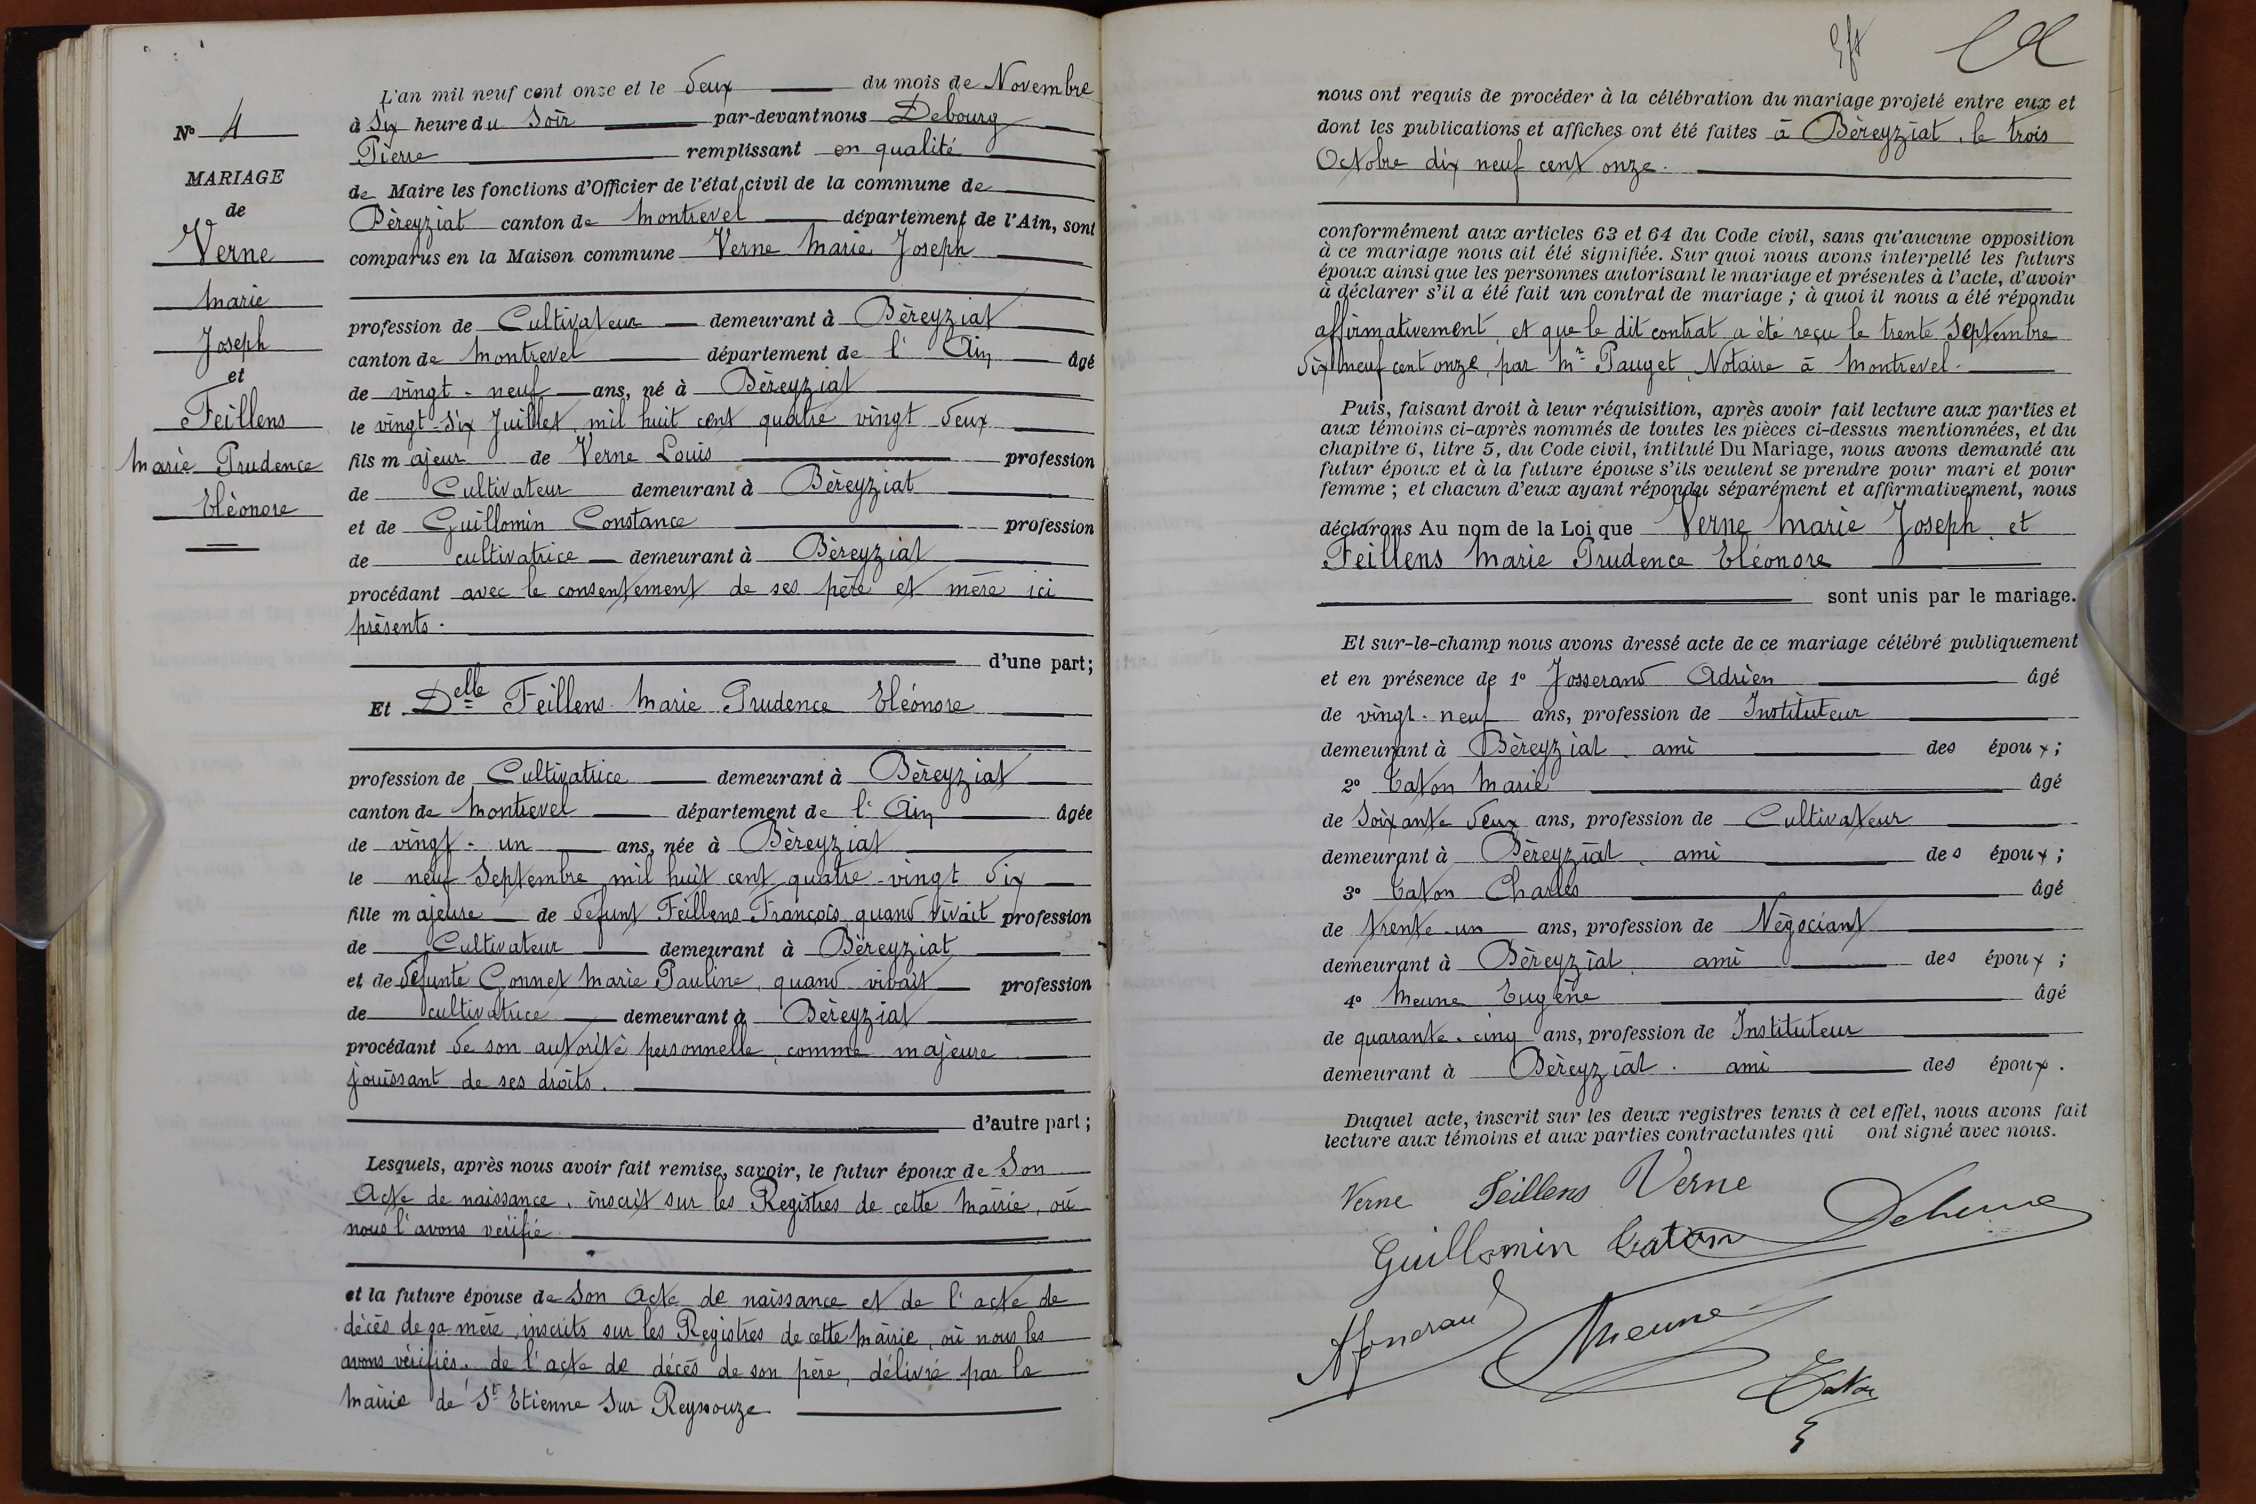 N° 4
MARIAGE
de
Verne
Marie
Joseph
et
Feillens
Marie Prudence
Eléonore
L'an mil neuf cent onze et le deux du mois de Novembre
à Six heure du Soir par-devant nous Debourg
Pierre remplissant en qualité
de Maire les fonctions d'Officier de l'état civil de la commune de
Béreyziat canton de Montrevel département de l'Ain, sont
comparus en la Maison commune Verne Marie Joseph
profession de Cultivateur demeurant à Béreyziat
canton de Montrevel département de l'Ain âgé
de vingt-neuf ans, né à Béreyziat
le vingt-six Juillet mil huit cent quatre vingt deux
fils majeur de Verne Louis profession
de Cultivateur demeurant à Béreyziat
et de Guillomin Constance profession
de cultivatrice demeurant à Béreyziat
procédant avec le consentement de ses père et mère ici
présents.
d'une part;
Et Delle Feillens Marie Prudence Eléonore
profession de Cultivatrice demeurant à Béreyziat
canton de Montrevel département de l'Ain âgée
de vingt-un ans, née à Béreyziat
le neuf Septembre mil huit cent quatre-vingt dix
fille majeure de défunt Feillens François quand vivait profession
de Cultivateur demeurant à Béreyziat
et de défunte Gonnet Marie Pauline, quand vivait profession
de cultivatrice demeurant à Béreyziat
procédant de son autorité personnelle, comme majeure
jouissant de ses droits.
d'autre part;
Lesquels, après nous avoir fait remise, savoir, le futur époux de Son
Acte de naissance, inscrit sur les Registres de cette Mairie, où
nous l'avons vérifié
et la future épouse de Son Acte de naissance et de l'acte de
décès de sa mère, inscrits sur les Registres de cette Mairie, où nous les
avons vérifiés, de l'acte de décès de son père, délivré par la
Mairie de St Etienne sur Reyssouze
nous ont requis de procéder à la célébration du mariage projeté entre eux et
dont les publications et affiches ont été faites à Béreyziat, le trois
Octobre dix neuf cent onze.
conformément aux articles 63 et 64 du Code civil, sans qu'aucune opposition
à ce mariage nous ait été signifiée. Sur quoi nous avons interpellé les futurs
époux ainsi que les personnes autorisant le mariage et présentes à l'acte, d'avoir
à déclarer s'il a été fait un contrat de mariage; à quoi il nous a été répondu
affirmativement, et que le dit contrat a été reçu le trente Septembre
dix neuf cent onze, par Mr Pauget, Notaire à Montrevel.
Puis, faisant droit à leur réquisition, après avoir fait lecture aux parties et
aux témoins ci-après nommés de toutes les pièces ci-dessus mentionnées, et du
chapitre 6, titre 5, du Code civil, intitulé Du Mariage, nous avons demandé au
futur époux et à la future épouse s'ils veulent se prendre pour mari et pour
femme; et chacun d'eux ayant répondu séparément et affirmativement, nous
déclarons Au nom de la Loi que Verne Marie Joseph et
Feillens Marie Prudence Eléonore
sont unis par le mariage.
Et sur-le-champ nous avons dressé acte de ce mariage célébré publiquement
et en présence de 1° Josserand Adrien âgé
de vingt-neuf ans, profession de Instituteur
demeurant à Béreyziat, ami des époux;
2° Caton Marie âgé
de Soixante deux ans, profession de Cultivateur
demeurant à Béreyziat, ami des époux;
3° Caton Charles âgé
de trente-un ans, profession de Négociant
demeurant à Béreyziat, ami des époux;
4° Meune Eugène âgé
de quarante-cinq ans, profession de Instituteur
demeurant à Béreyziat. ami des époux.
Duquel acte, inscrit sur les deux registres tenus à cet effet, nous avons fait
lecture aux témoins et aux parties contractantes qui ont signé avec nous.
Verne Feillens Verne
Guillomin Caton
Meune
Caton